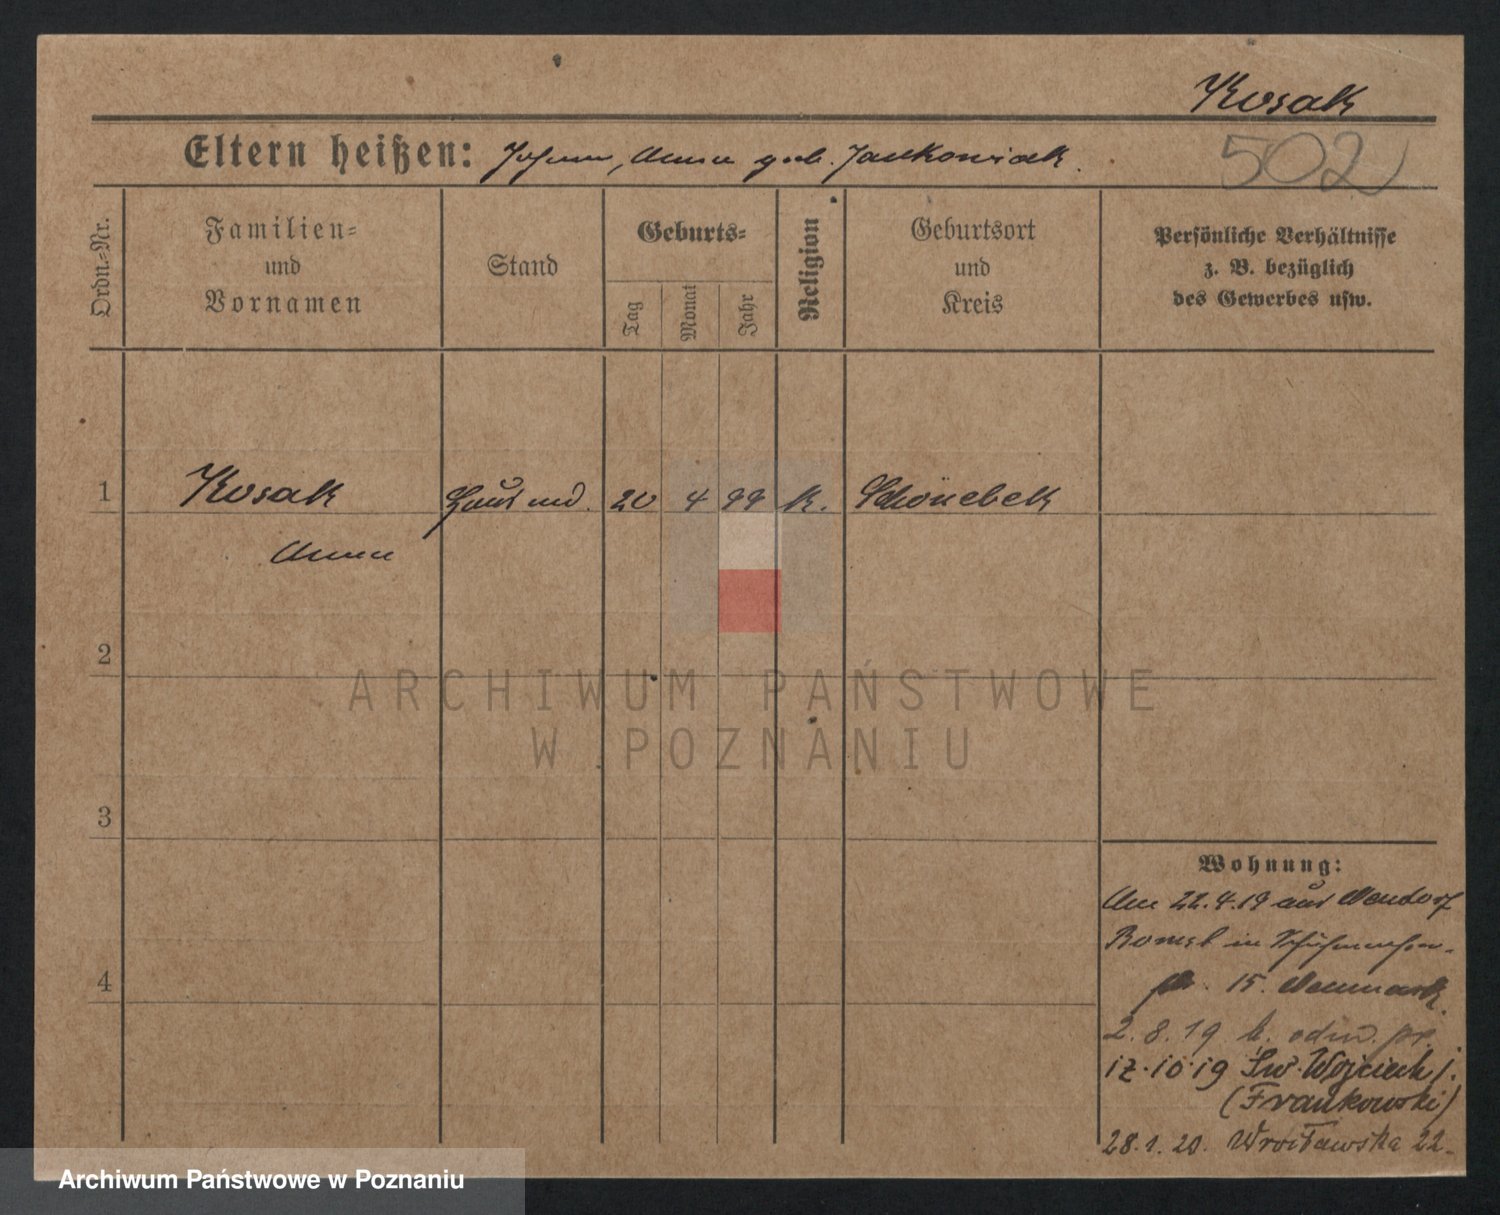 Kosak
Eltern heißen: Johann, Anna geb. Jankowiak.
502
Ordn.=Nr.
Familien=
und
Vornamen
Stand
Geburts=
Tag
Monat
Jahr
Religion
Geburtsort
und
Kreis
Persönliche Verhältnisse
z. B. bezüglich
des Gewerbes usw.
1 Kosak 20 4 99 k. Schönebek
Anna
2
ARCHIWUM PAŃSTWOWE
W POZNANIU
3
4
Wohnung:
Am 22.4.19 aus
Bomst in
15.
2.8.19
12.10.19 Św. Wojciech 1.
(Frankowski)
28.1.20. Wrocławska 22.
Archiwum Państwowe w Poznaniu